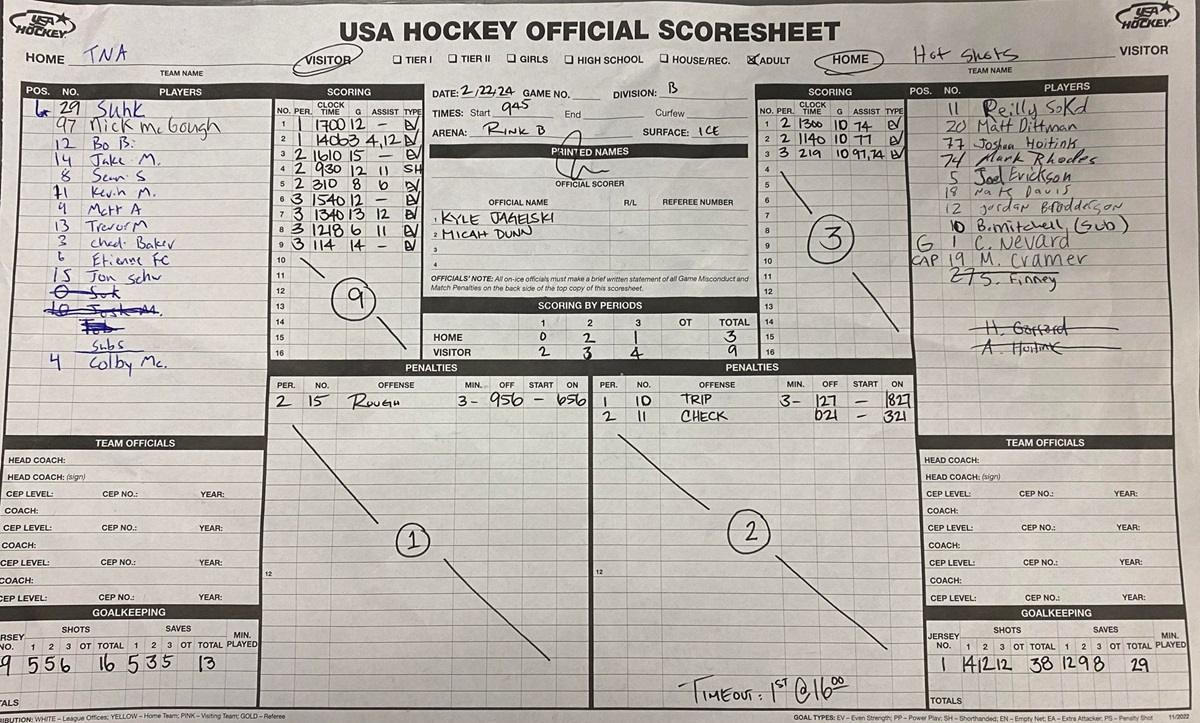 USA HOCKEY
USA HOCKEY OFFICIAL SCORESHEET
USA HOCKEY
HOME TNA
TEAM NAME
VISITOR
TIER I TIER II GIRLS HIGH SCHOOL HOUSE/REC. ADULT
HOME
Hot Shots VISITOR
TEAM NAME
POS. NO. PLAYERS
29 Suhk
97 Nick McGough
12 Bo B.
14 Jake M.
8 Sean S
71 Kevin M.
9 Matt A
13 Trevor M
3 Chad Baker
6 Etienne FC
15 Jon Schw
Subs
4 Colby Mc.
SCORING
NO. PER. CLOCK TIME G ASSIST TYPE
1 1 1700 12 - EV
2 1406 3 4,12 EV
3 2 1610 15 - EV
4 2 930 12 11 SH
5 2 310 8 6 EV
6 3 1540 12 - EV
7 3 1340 13 12 EV
8 3 1218 6 11 EV
9 3 114 14 - EV
10
11
12
13
14
15
16
9
DATE: 2/22/24 GAME NO. DIVISION: B
TIMES: Start 945 End Curfew
ARENA: RINK B SURFACE: ICE
PRINTED NAMES
OFFICIAL SCORER
OFFICIAL NAME R/L REFEREE NUMBER
1 KYLE JAGELSKI
2 MICAH DUNN
3
4
OFFICIALS' NOTE: All on-ice officials must make a brief written statement of all Game Misconduct and
Match Penalties on the back side of the top copy of this scoresheet.
SCORING BY PERIODS
1 2 3 OT TOTAL
HOME 0 2 1 3
VISITOR 2 3 4 9
SCORING
NO. PER. CLOCK TIME G ASSIST TYPE
1 2 1300 10 74 EV
2 2 1140 10 77 EV
3 3 219 10 97,74 EV
4
5
6
7
8
9
10
11
12
13
14
15
16
3
POS. NO. PLAYERS
11 Reilly Sokd
20 Matt Dittman
77 Joshua Hoitink
74 Mark Rhodes
5 Joel Erickson
18 Nate Davis
12 Jordan Brodderson
10 B. Mitchell (Sub)
G 1 C. Nevard
CAP 19 M. Cramer
27 S. Finney
H. Gofford
A. Hoitink
PENALTIES
PER. NO. OFFENSE MIN. OFF START ON
2 15 ROUGH 3- 956 - 656
12
1
PENALTIES
PER. NO. OFFENSE MIN. OFF START ON
1 10 TRIP 3- 127 - 1827
2 11 CHECK 021 - 321
12
2
TIMEOUT: 1ST @ 16:00
TEAM OFFICIALS
HEAD COACH:
HEAD COACH: (sign)
CEP LEVEL: CEP NO.: YEAR:
COACH:
CEP LEVEL: CEP NO.: YEAR:
COACH:
CEP LEVEL: CEP NO.: YEAR:
COACH:
CEP LEVEL: CEP NO.: YEAR:
GOALKEEPING
SHOTS SAVES
JERSEY NO. 1 2 3 OT TOTAL 1 2 3 OT TOTAL MIN. PLAYED
9 5 5 6 16 5 3 5 13
TALS
TEAM OFFICIALS
HEAD COACH:
HEAD COACH: (sign)
CEP LEVEL: CEP NO.: YEAR:
COACH:
CEP LEVEL: CEP NO.: YEAR:
COACH:
CEP LEVEL: CEP NO.: YEAR:
COACH:
CEP LEVEL: CEP NO.: YEAR:
GOALKEEPING
SHOTS SAVES
JERSEY NO. 1 2 3 OT TOTAL 1 2 3 OT TOTAL MIN. PLAYED
1 14 12 12 38 12 9 8 29
TOTALS
RIBUTION: WHITE – League Offices; YELLOW – Home Team; PINK – Visiting Team; GOLD – Referee
GOAL TYPES: EV – Even Strength; PP – Power Play; SH – Shorthanded; EN – Empty Net; EA – Extra Attacker; PS – Penalty Shot 11/2022